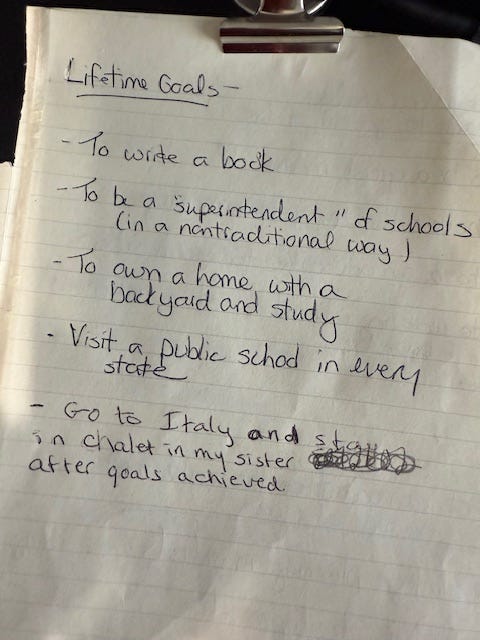 Lifetime Goals-
- To write a book
- To be a "superintendent" of schools
(in a nontraditional way)
- To own a home with a
backyard and study
- Visit a public school in every
state
- Go to Italy and stay
in chalet in my sister
after goals achieved